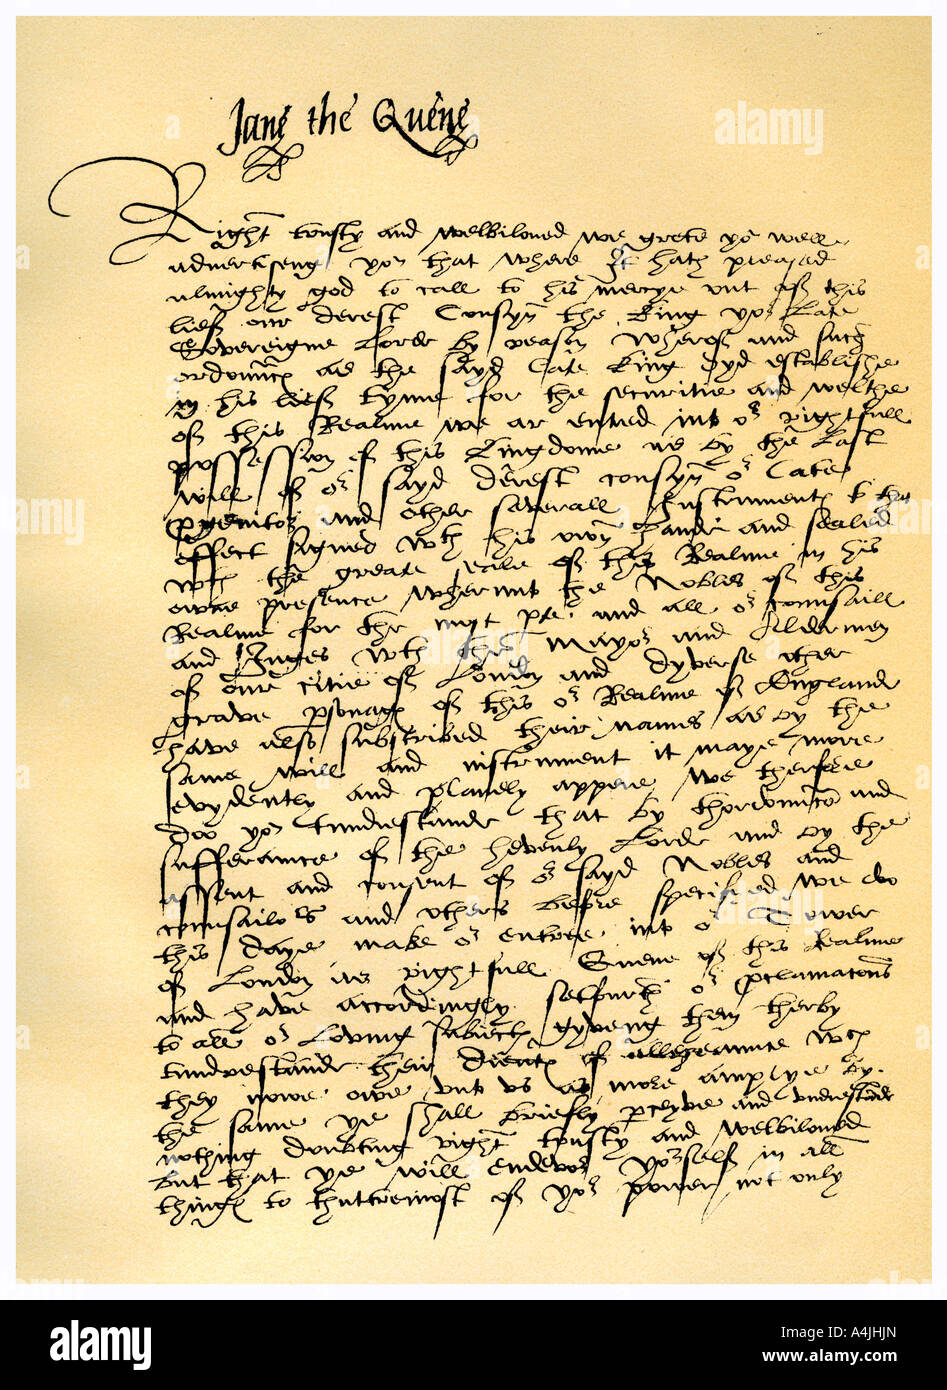 Jane the Quene
Right trusty and welbiloved we grete yor well
advertiseng yow that where it hath pleased
almighty god to call to his mercye out of this
lief our derest Cousyn the King yor late
Sovereigne Lorde by reason wherof and such
ordonncs as the sayd late King dyd establishe
in his lief tyme for the securitie and welthe
of this Realme we ar entred into or rightfull
possession of this Kingdome as by the last
will of or sayd derest cousyn or late
pgenitor and other severall Instruments to that
effect signed wth his own hande and sealed
wth the greate seale of this Realme in his
owne presence wherunto the Nobles of this
Realme for the most pte and all or counsaill
and Juges wth the Mayor and Aldermen
of our citie of London and dyverse other
grave psonags of this or Realme of England
have also subscribed their names as by the
same will and instrument it maye more
evydently and planely appere we therfore
doo yow tundrestande that by thordonnce and
sufferaunce of the hevenly Lorde and by the
assent and consent of or sayd Nobles and
counsailors and others before specified we do
this daye make or entree into or Tower
of London as rightfull Quene of this Realme
and have accordingly setfurth or pclamacons
to all or loving subiects gyveng them therby
tundrestande their dueties of allegeaunce wch
they nowe owe unto us as more amplye by
the same ye shall briefly pceyve and undrestande
nothing doubting right trusty and welbiloved
but that ye will endevor yorself in all
things to thuttermost of yor power not only
alamy
Image ID: A4JHJN
www.alamy.com